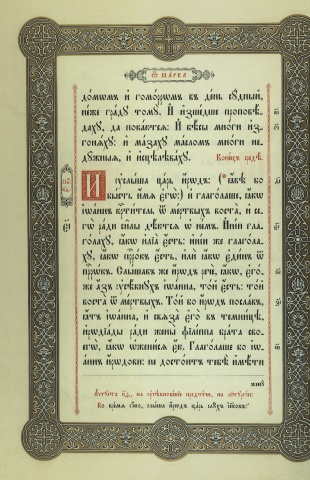 Ѿ марка
домѡмъ и҆ гоморѡмъ въ де́нь сꙋ́дный,
не́же гра́дꙋ томꙋ̀. И҆ и҆зше́дше проповѣ́-
дахꙋ, да пока́ютсѧ: И҆ бѣ́сы мнѡ́ги и҆з-
гонѧ́хꙋ: и҆ ма́захꙋ ма́сломъ мнѡ́ги не-
дꙋ́жныѧ, и҆ и҆сцѣлѣва́хꙋ. Коне́цъ средѣ̀.
И҆ ᲂу҆слы́ша ца́рь и҆́рѡдъ: (ꙗ҆́вѣ бо
бы́сть и҆́мѧ є҆гѡ̀:) и҆ глаго́лаше, ꙗ҆́кѡ
і҆ѡа́ннъ крⷭ҇ти́тель ѿ ме́ртвыхъ воста̀, и҆ се-
гѡ̀ ра́ди си̑лы дѣ́ютсѧ ѡ҆ не́мъ. И҆ні́и гла-
го́лахꙋ, ꙗ҆́кѡ и҆лїа̀ є҆́сть: и҆ні́и же глаго́ла-
хꙋ, ꙗ҆́кѡ прⷪ҇ро́къ є҆́сть, и҆лѝ ꙗ҆́кѡ є҆ди́нъ ѿ
прⷪ҇рѡ́къ. Слы́шавъ же и҆́рѡдъ речѐ, ꙗ҆́кѡ, є҆го́-
же а҆́зъ ᲂу҆сѣ́кнꙋхъ і҆ѡа́нна, то́й є҆́сть: то́й
воста̀ ѿ ме́ртвыхъ. То́й бо и҆́рѡдъ посла́въ,
ꙗ҆́тъ і҆ѡа́нна, и҆ свѧза̀ є҆го̀ въ темни́цѣ,
и҆рѡдїа́ды ра́ди жены̀ фїлі́ппа бра́та сво-
егѡ̀, ꙗ҆́кѡ ѡ҆жени́сѧ є҆́ю. Глаго́лаше бо і҆ѡ-
а́ннъ и҆́рѡдови: не досто́итъ тебѣ̀ и҆мѣ́ти
женꙋ̀
Во вре́мѧ ѻ҆́но, слы́ша и҆́рѡдъ ца́рь слꙋ́хъ і҆и҃совъ: